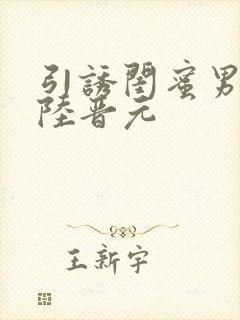 引誘閨蜜男
陸晋元
王新宇